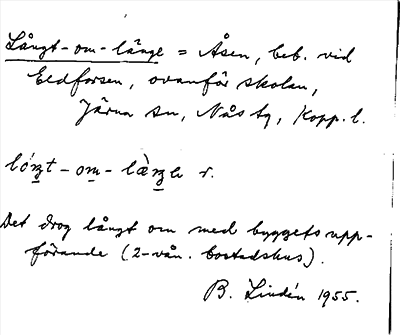 Långt-om-länge = Åsen, beb. vid
Eldforsen, ovanför skolan,
Järna sn, Nås tg, Kopp. l.
lóŋt-om-lèŋe r.
Det drog långt om med byggets upp-
förande (2-vån. bostadshus).
B. Lindén 1955.